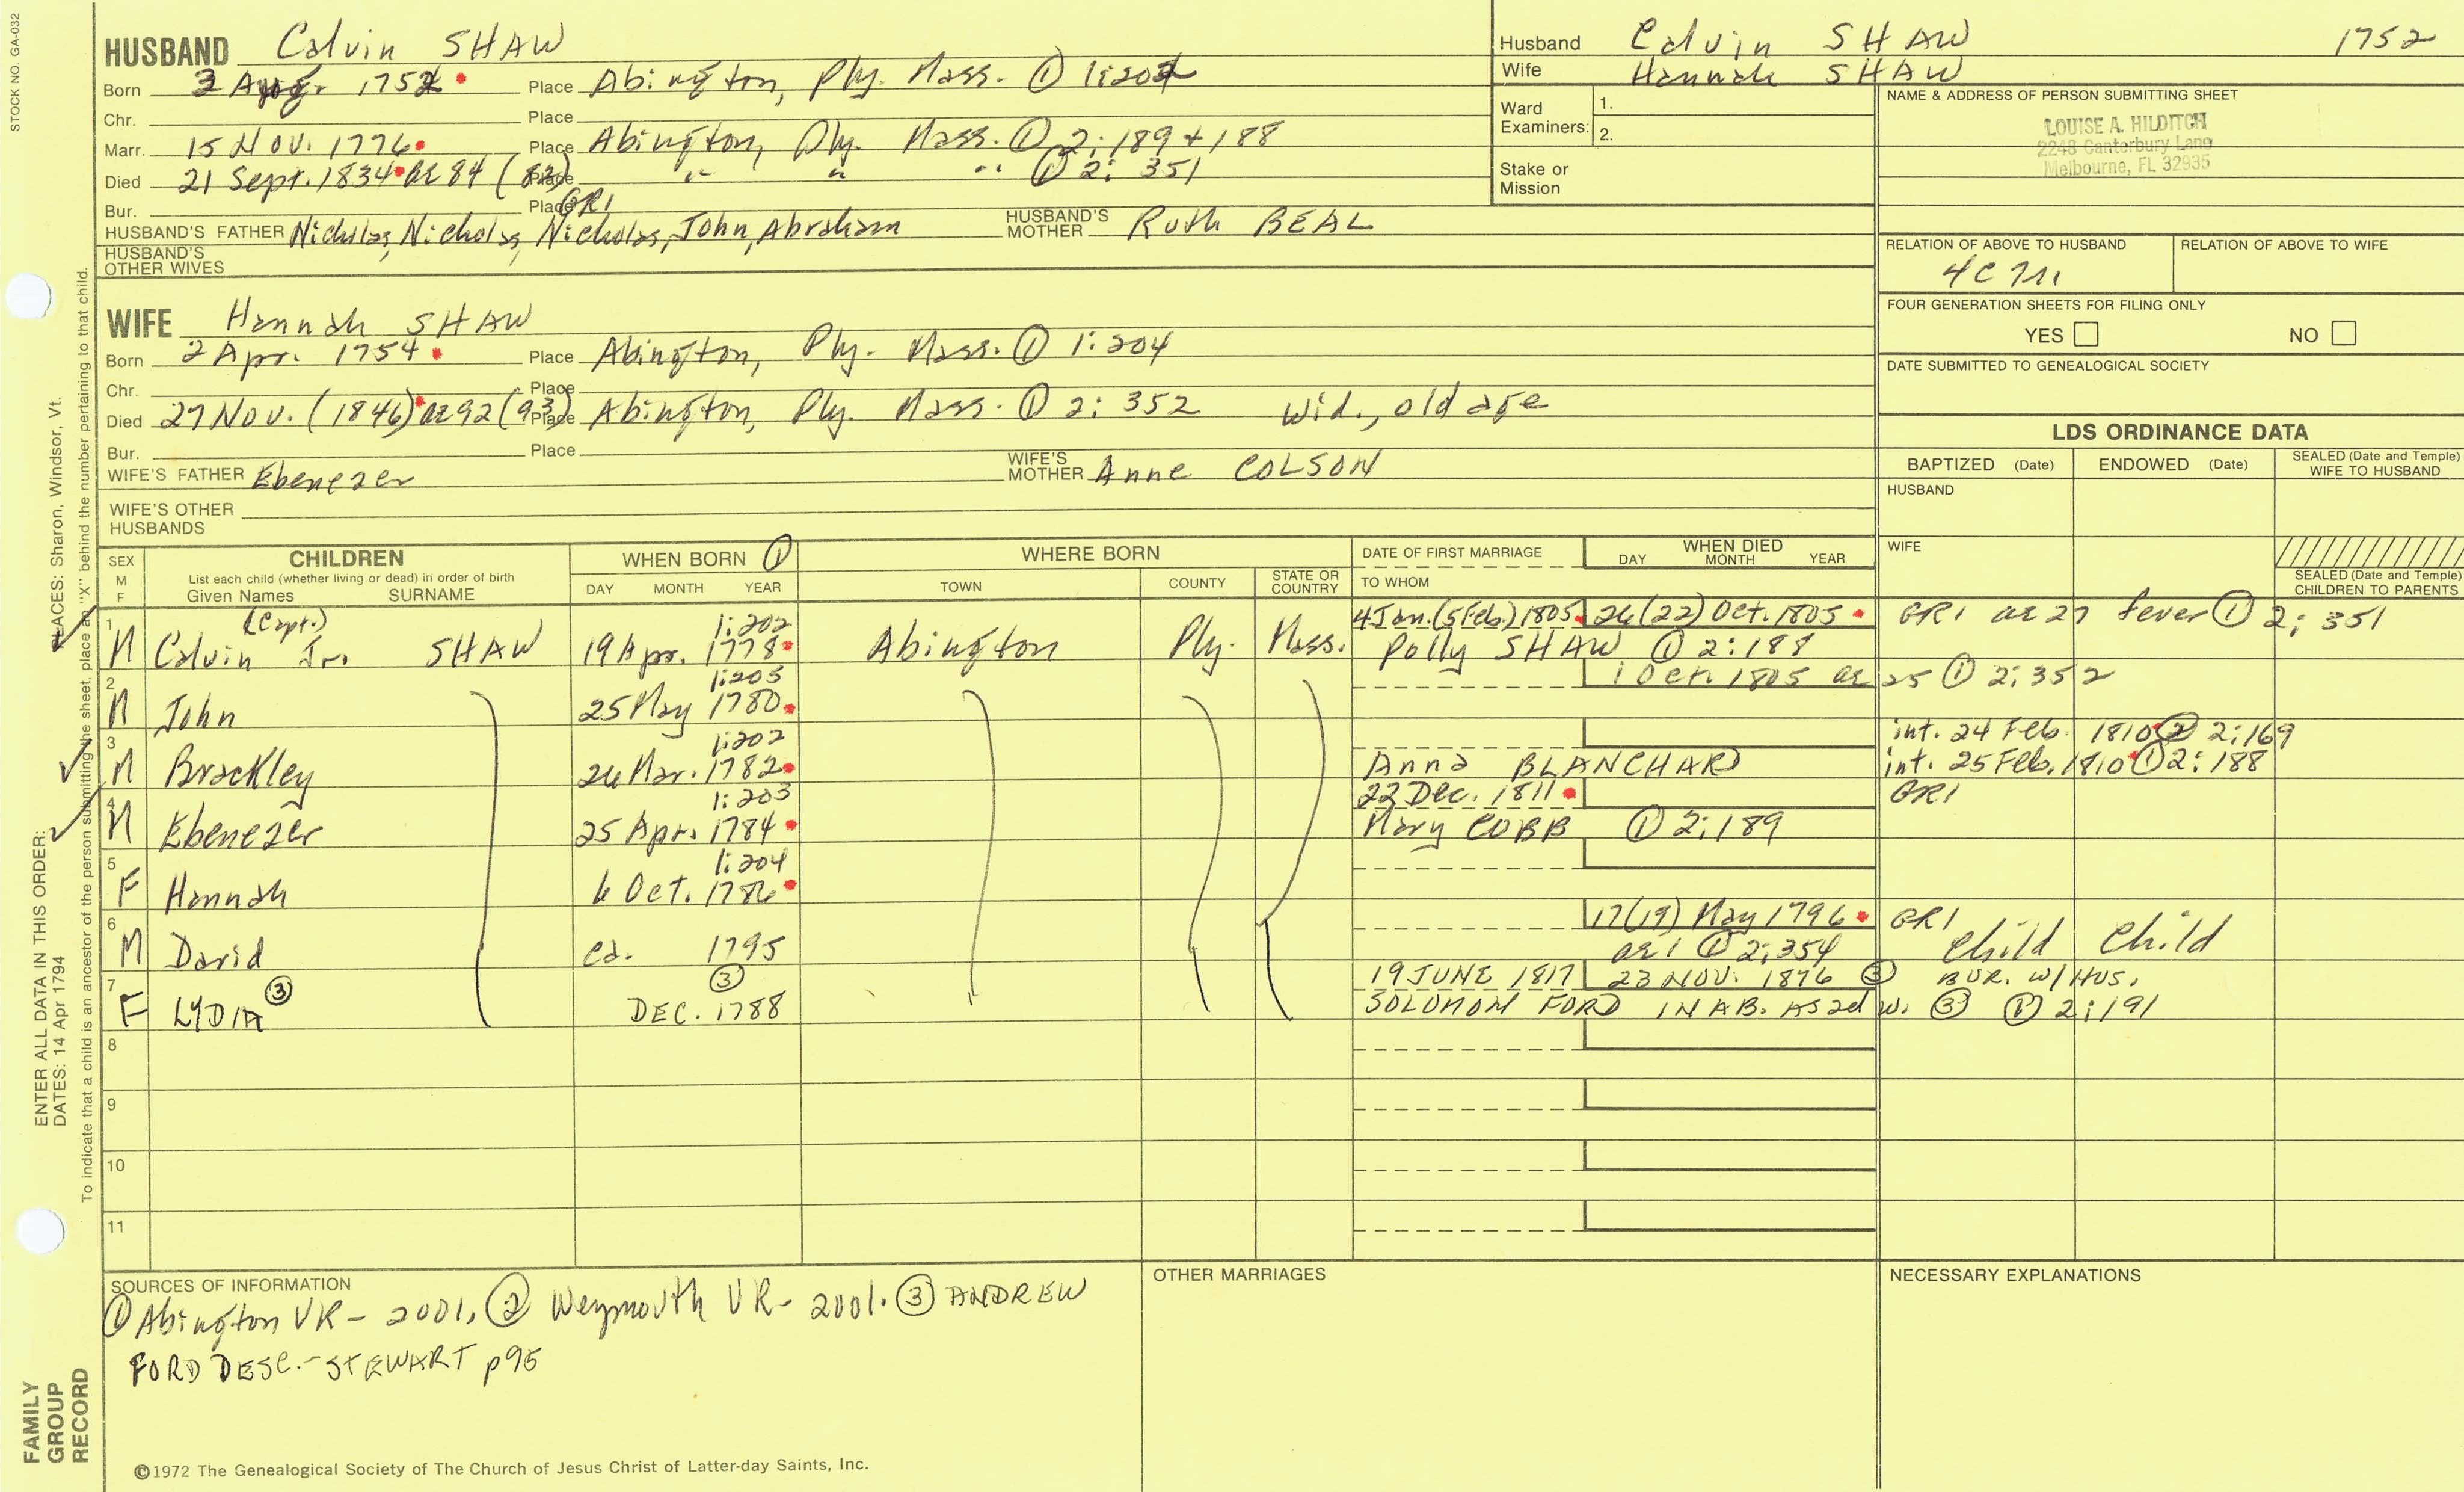 STOCK NO. GA-032
HUSBAND Calvin SHAW
Born 1752 Place Abington, Ply. Mass. ① 1:202
Chr. Place
Marr. 15 Nov. 1776 Place Abington, Ply. Mass. ① 2:189+188
Died 21 Sept. 1834 ae 84 (83) Place " " " ① 2:351
Bur. Place GR1
HUSBAND'S FATHER Nicholas, Nicholas, Nicholas, John, Abraham HUSBAND'S MOTHER Ruth BEAL
HUSBAND'S OTHER WIVES
Husband Calvin SHAW 1752
Wife Hannah SHAW
Ward Examiners: 1.
2.
Stake or Mission
NAME & ADDRESS OF PERSON SUBMITTING SHEET
LOUISE A. HILDITCH
2248 Canterbury Lane
Melbourne, FL 32935
RELATION OF ABOVE TO HUSBAND RELATION OF ABOVE TO WIFE
FOUR GENERATION SHEETS FOR FILING ONLY
YES NO
DATE SUBMITTED TO GENEALOGICAL SOCIETY
WIFE Hannah SHAW
Born 2 Apr. 1754 Place Abington, Ply. Mass. ① 1:204
Chr. Place
Died 27 Nov. (1846) ae 92 (93) Place Abington, Ply. Mass. ① 2:352 wid., old age
Bur. Place
WIFE'S FATHER Ebenezer WIFE'S MOTHER Anne COLSON
WIFE'S OTHER HUSBANDS
LDS ORDINANCE DATA
BAPTIZED (Date) ENDOWED (Date) SEALED (Date and Temple) WIFE TO HUSBAND
HUSBAND
WIFE
SEALED (Date and Temple) CHILDREN TO PARENTS
SEX M F
CHILDREN
List each child (whether living or dead) in order of birth
Given Names SURNAME
WHEN BORN ①
DAY MONTH YEAR
WHERE BORN
TOWN COUNTY STATE OR COUNTRY
DATE OF FIRST MARRIAGE
TO WHOM
WHEN DIED
DAY MONTH YEAR
1 (Capt.) 1:202 4 Jan. (5 Feb.) 1805 26 (22) Oct. 1805 GR1 ae 27 fever ① 2:351
M Calvin Jr. SHAW 19 Apr. 1778 Abington Ply. Mass. Polly SHAW ① 2:188
2 1:205 1 Oct. 1805 ae 25 ① 2:352
M John 25 May 1780
3 1:202 int. 24 Feb. 1810 ② 2:169
M Brackley 26 Mar. 1782 Anna BLANCHARD int. 25 Feb. 1810 ① 2:188
4 1:203 22 Dec. 1811 GR1
M Ebenezer 25 Apr. 1784 Mary COBB ① 2:189
5 1:204
F Hannah 6 Oct. 1786
6 17 (19) May 1796 GR1
M David ca. 1795 ae 1 ① 2:354 child child
7 ③ 19 JUNE 1817 23 NOV. 1876 ③ BUR. W/HUS.
F LYDIA ③ DEC. 1788 SOLOMON FORD IN AB. AS 2d W. ③ ① 2:191
8
9
10
11
SOURCES OF INFORMATION
① Abington VR - 2001. ② Weymouth VR - 2001. ③ ANDREW
FORD DESC. - STEWART p95
OTHER MARRIAGES
NECESSARY EXPLANATIONS
©1972 The Genealogical Society of The Church of Jesus Christ of Latter-day Saints, Inc.
FAMILY GROUP RECORD
ENTER ALL DATA IN THIS ORDER:
DATES: 14 Apr 1794
PLACES: Sharon, Windsor, Vt.
To indicate that a child is an ancestor of the person submitting the sheet, place an "X" behind the number pertaining to that child.